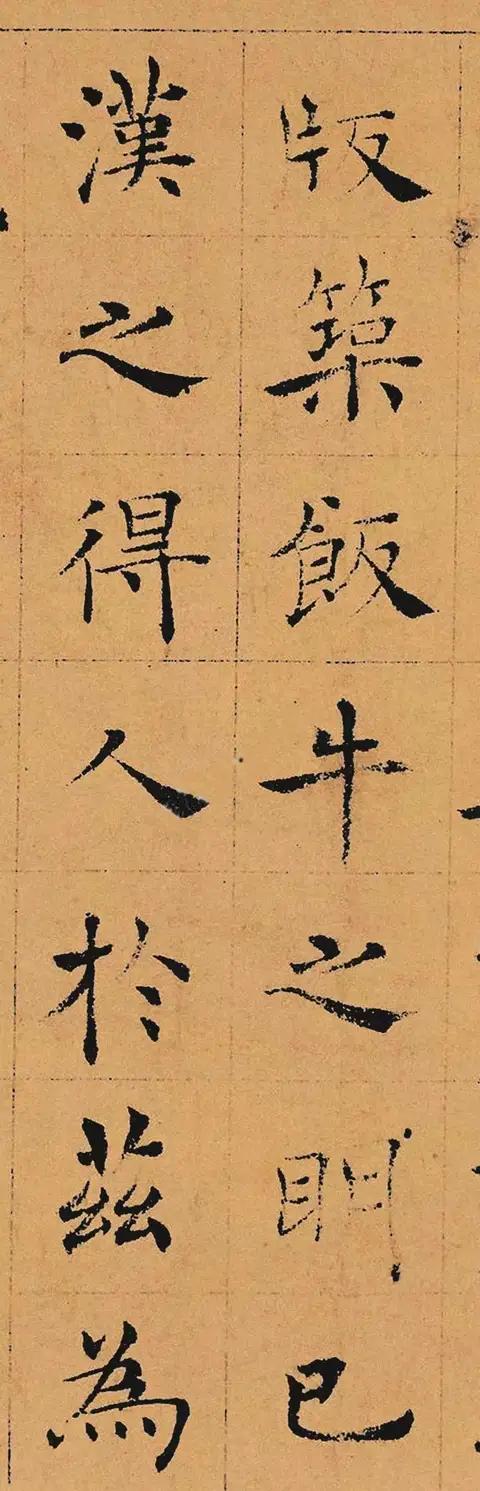 版築飯牛之明已
漢之得人於茲為